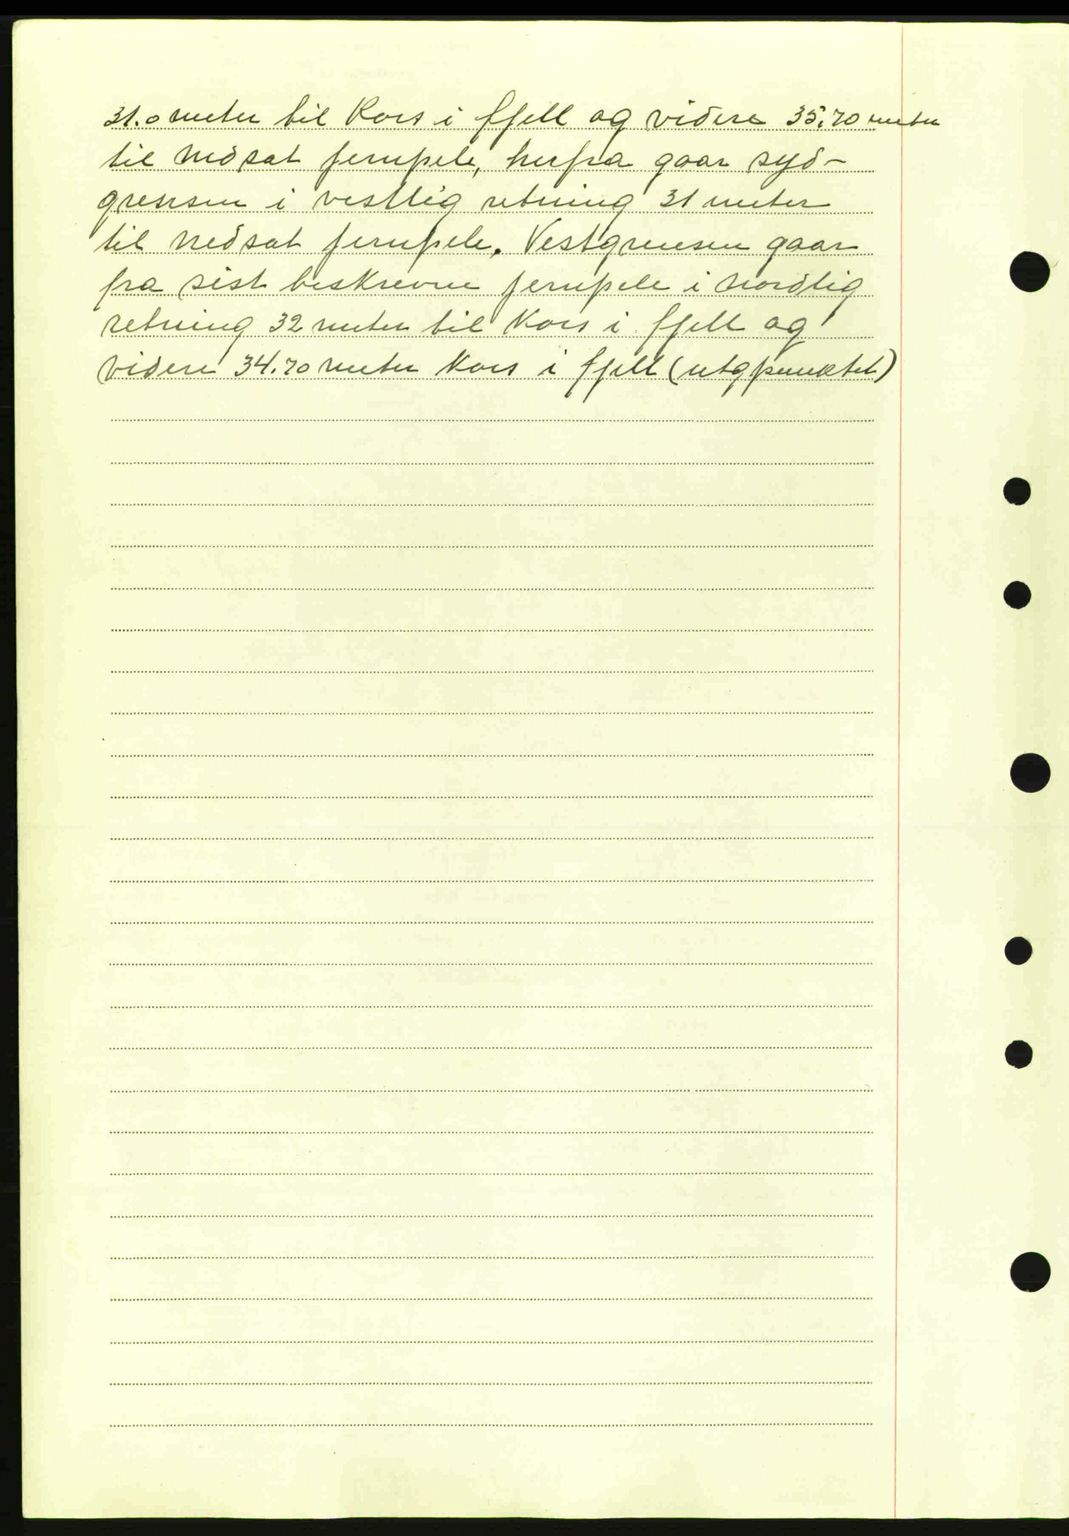 31.0 meter til Kors i fjell og videre 35,70 meter
til nedsat jernpele, herfra gaar syd-
grensen i vestlig retning 31 meter
til nedsat jernpele. Vestgrensen gaar
fra sist beskrevne jernpele i nordlig
retning 32 meter til Kors i fjell og
videre 34.70 meter Kors i fjell (utgpunktet)